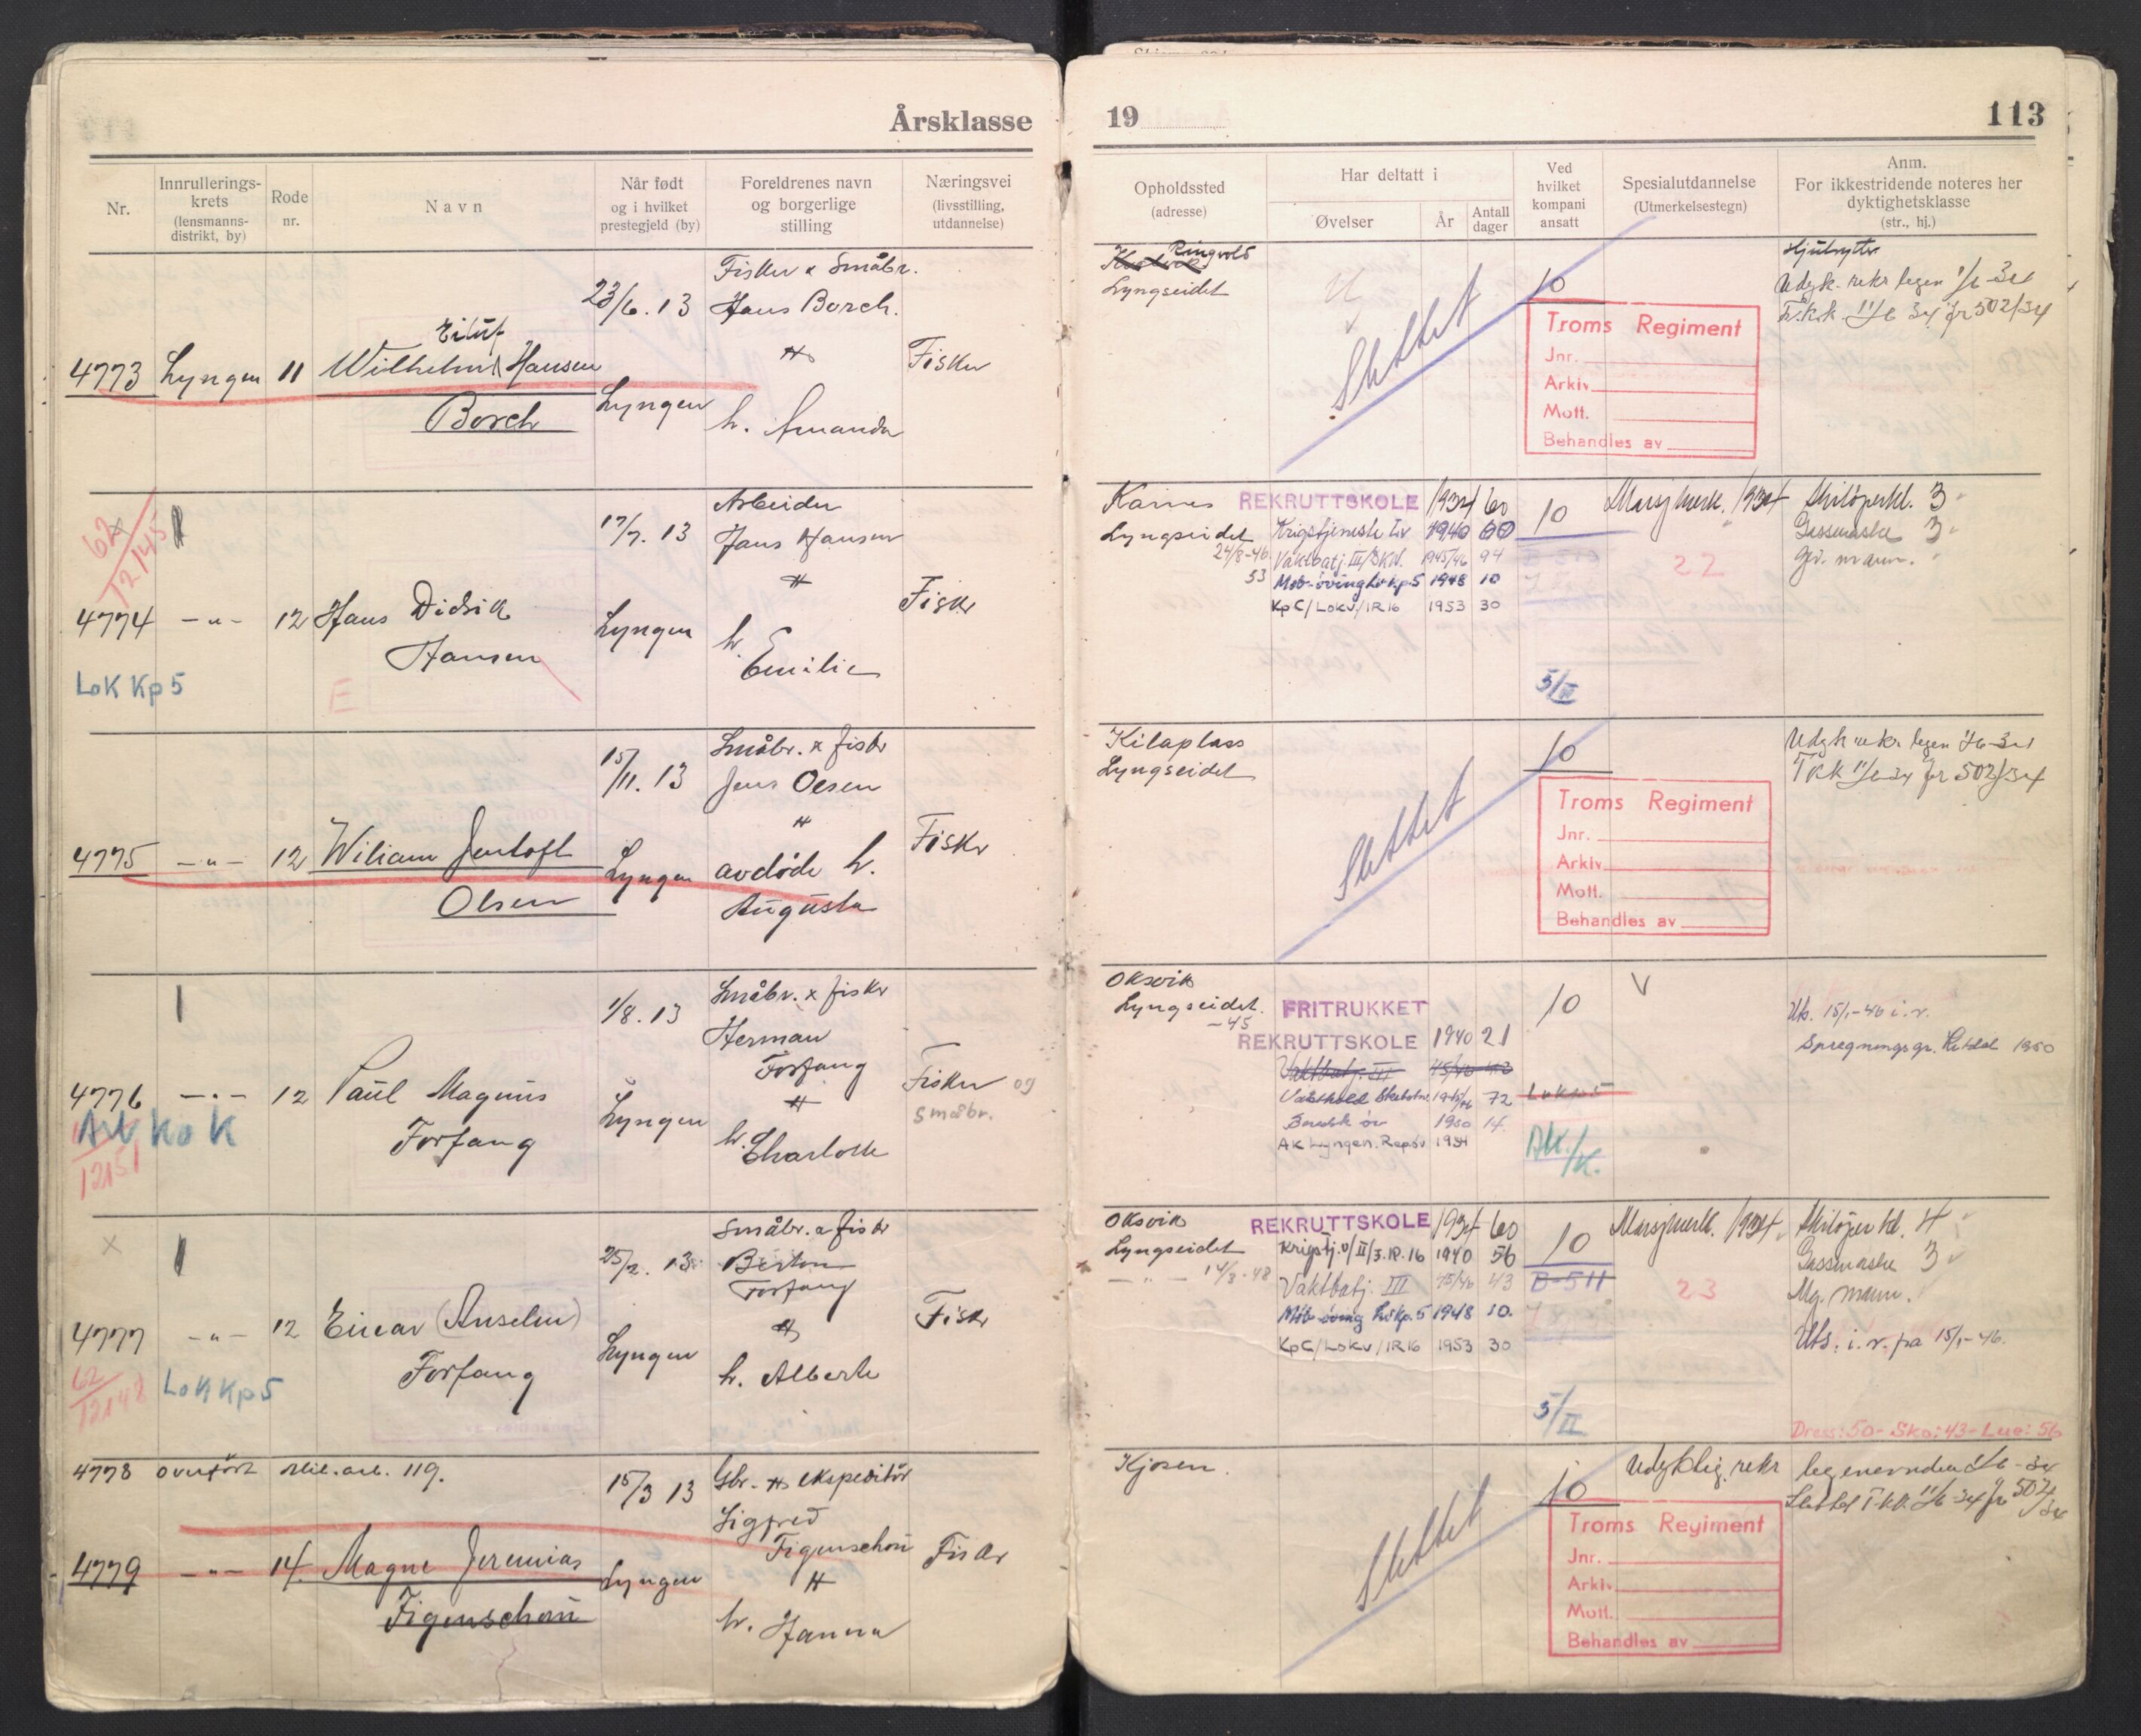 Årsklasse
Nr.
Innrullerings-
krets
(lensmanns-
distrikt, by)
Rode
nr.
Navn
Når født
og i hvilket
prestegjeld (by)
Foreldrenes navn
og borgerlige
stilling
Næringsvei
(livsstilling,
utdannelse)
4773 Lyngen 11
Wilhelm Hansen
Borch
23/6. 13
Lyngen
Fisker & Småbr.
Hans Borch.
h. Amanda
Fisker
62
12145
4774 -"- 12 Hans Didrik
Hansen
LoK Kp 5
E
17/7. 13
Lyngen
Arbeider
Hans Hansen
h.
Emilie
Fisker
4775 -"- 12 Wiliam Jentoft
Olsen
15/11. 13
Lyngen
Småbr. & fisker
Jens Olsen
avdøde h.
Augusta
Fisker
4776 -"- 12 Paul Magnus
Forfang
12151
1/8. 13
Lyngen
Småbr. & fisker
Herman
Forfang
h. Charlotte
Fisker og
småbr.
4777 -"- 12 Einar (Anselm)
Forfang
62
12148
LoK Kp 5
25/2. 13
Lyngen
Småbr. & fisker
Forfang
h. Alberte
Fisker
4778 overført mil.arb. 119.
4779 -"- 14. Magne Jeremias
Figenschou
15/3 13
Lyngen
Gbr. ekspeditør
Sigfred
Figenschou
h. Hanna
Fisker
19
113
Opholdssted
(adresse)
Har deltatt i
Øvelser
År
Antall
dager
Ved
hvilket
kompani
ansatt
Spesialutdannelse
(Utmerkelsestegn)
Anm.
For ikkestridende noteres her
dyktighetsklasse
(str., hj.)
Ringvold
Lyngseidet
Slettet
10
Troms Regiment
Jnr.
Arkiv
Mott.
Behandles av
Udyk. rekr legen 1/6-34
T.k.k. 11/6 34 jr 502/34
Karnes
Lyngseidet
24/8-46
53
REKRUTTSKOLE 1934 60
Krigstjeneste 1940 60
Vaktbatj. III 1945/46 94
Mob-øving Lokp5 1948 10
KpC/LoKv/IR16 1953 30
10
5/II
Marsjmerk. 1934
22
Skiløperkl. 3
Gassmaske 3
Gv. mann.
Kilaplass
Lyngseidet
Slettet
10
Troms Regiment
Jnr.
Arkiv
Mott.
Behandles av
Udyk rekr legen 1/6-34
TKK 11/6 34 jr 502/34
Oksvik
Lyngseidet.
-45
FRITRUKKET
REKRUTTSKOLE 1940 21
Vaktbatj. III 45/46 43
Vakthold 1945/46 72
1950 14
AK Lyngen. Repøv 1954
10
Lokp 5
AK./K.
V
Uts. 15/1-46 i.r.
1950
Oksvik
Lyngseidet
-"- 14/3-48
REKRUTTSKOLE 1934 60
Krigstj. v/II/3.IR.16 1940 56
Vaktbatj. III 45/46 43
Mob-øving Lokp.5 1948 10.
KpC/LoKv/IR16 1953 30
10
B-511
5/II
Marsjmerk. 1934
23
Skiløper kl. 4
Gassmaske 3
Mg. mann.
Uts. i.r. på 15/1-46.
Dress: 50- Sko: 43- Lue: 56
Kjosen.
Slettet
10
Troms Regiment
Jnr.
Arkiv
Mott.
Behandles av
Udyktig rekr legenevnden 1/6-34
Slettet T.k.k. 11/6-34 jr 502/34